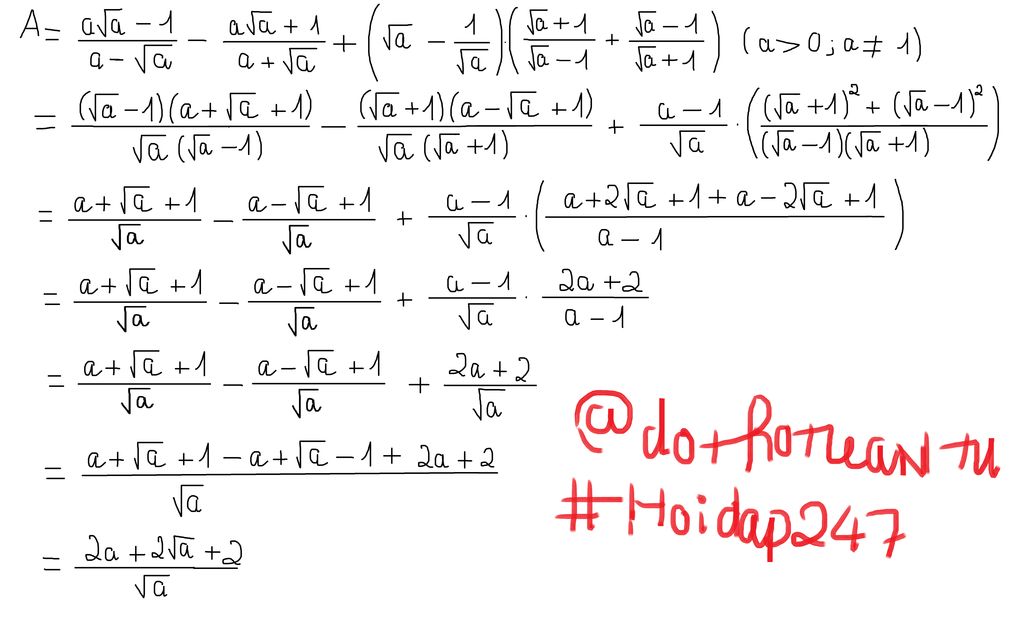 A = \frac{a\sqrt{a} - 1}{a - \sqrt{a}} - \frac{a\sqrt{a} + 1}{a + \sqrt{a}} + \left(\sqrt{a} - \frac{1}{\sqrt{a}}\right) \cdot \left(\frac{\sqrt{a} + 1}{\sqrt{a} - 1} + \frac{\sqrt{a} - 1}{\sqrt{a} + 1}\right) (a > 0; a ≠ 1)
= \frac{(\sqrt{a} - 1)(a + \sqrt{a} + 1)}{\sqrt{a}(\sqrt{a} - 1)} - \frac{(\sqrt{a} + 1)(a - \sqrt{a} + 1)}{\sqrt{a}(\sqrt{a} + 1)} + \frac{a - 1}{\sqrt{a}} \cdot \left(\frac{(\sqrt{a} + 1)^2 + (\sqrt{a} - 1)^2}{(\sqrt{a} - 1)(\sqrt{a} + 1)}\right)
= \frac{a + \sqrt{a} + 1}{\sqrt{a}} - \frac{a - \sqrt{a} + 1}{\sqrt{a}} + \frac{a - 1}{\sqrt{a}} \cdot \left(\frac{a + 2\sqrt{a} + 1 + a - 2\sqrt{a} + 1}{a - 1}\right)
= \frac{a + \sqrt{a} + 1}{\sqrt{a}} - \frac{a - \sqrt{a} + 1}{\sqrt{a}} + \frac{a - 1}{\sqrt{a}} \cdot \frac{2a + 2}{a - 1}
= \frac{a + \sqrt{a} + 1}{\sqrt{a}} - \frac{a - \sqrt{a} + 1}{\sqrt{a}} + \frac{2a + 2}{\sqrt{a}}
= \frac{a + \sqrt{a} + 1 - a + \sqrt{a} - 1 + 2a + 2}{\sqrt{a}}
= \frac{2a + 2\sqrt{a} + 2}{\sqrt{a}}
#Hoidap247